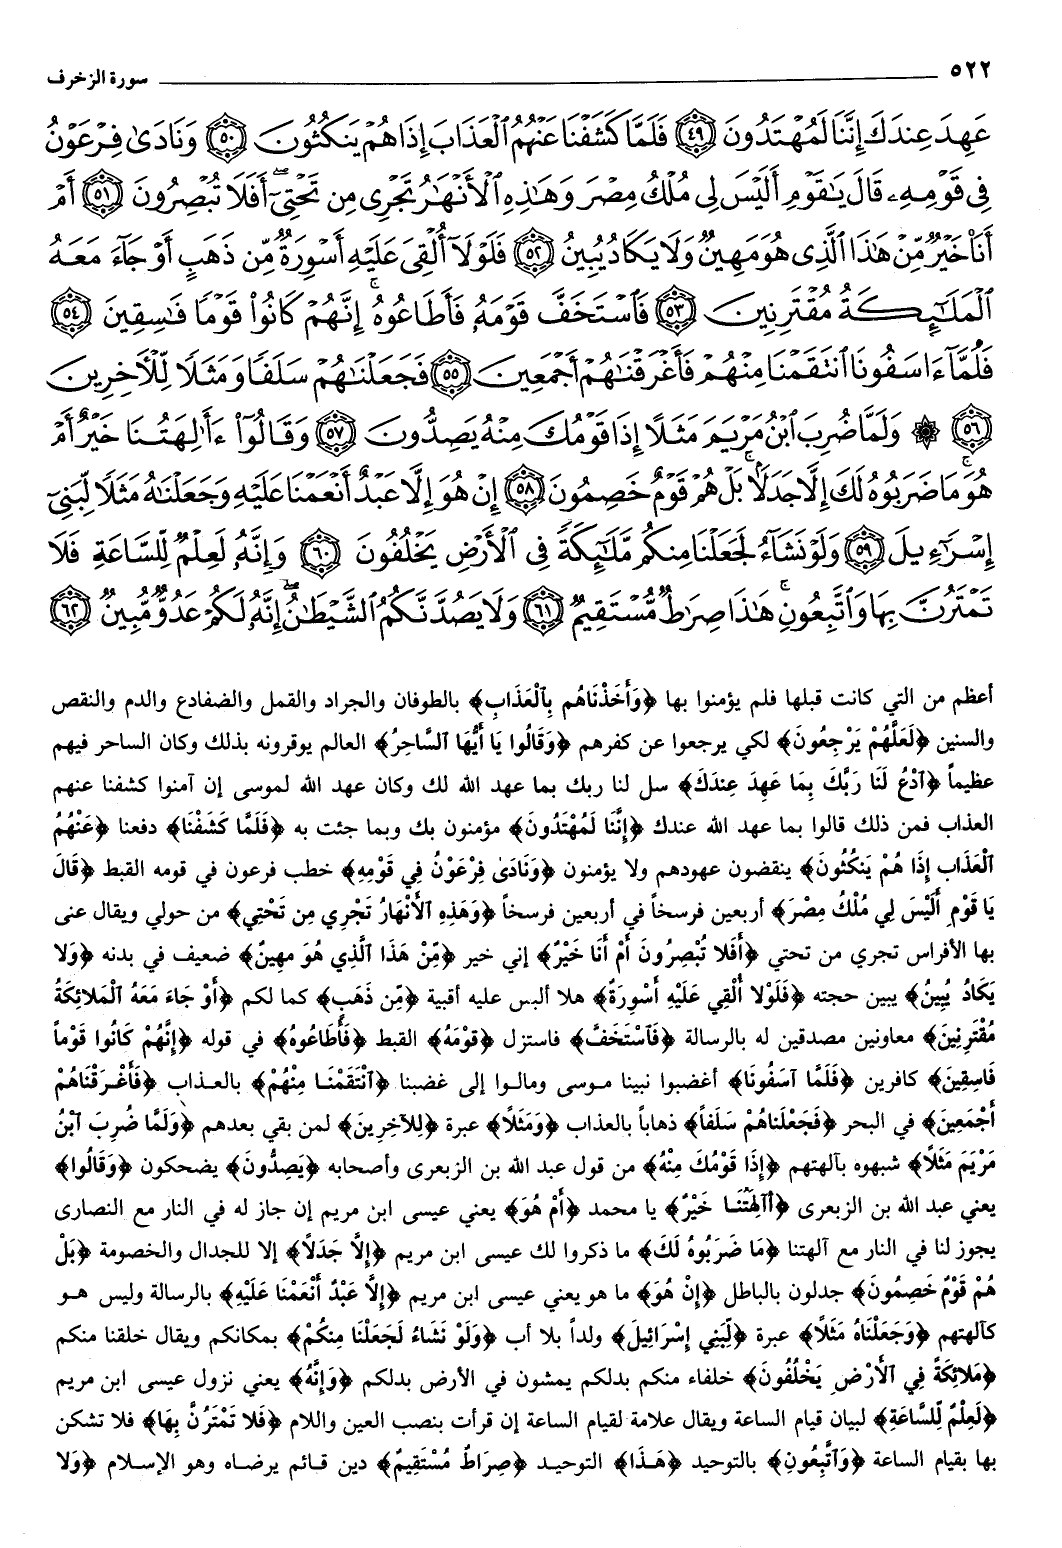 ٥٢٢ سورة الزخرف
عَهِدَ عِندَكَ إِنَّنَا لَمُهْتَدُونَ ﴿٤٩﴾ فَلَمَّا كَشَفْنَا عَنْهُمُ ٱلْعَذَابَ إِذَا هُمْ يَنكُثُونَ ﴿٥٠﴾ وَنَادَىٰ فِرْعَوْنُ
فِى قَوْمِهِۦ قَالَ يَـٰقَوْمِ أَلَيْسَ لِى مُلْكُ مِصْرَ وَهَـٰذِهِ ٱلْأَنْهَـٰرُ تَجْرِى مِن تَحْتِىٓ ۖ أَفَلَا تُبْصِرُونَ ﴿٥١﴾ أَمْ
أَنَا۠ خَيْرٌ مِّنْ هَـٰذَا ٱلَّذِى هُوَ مَهِينٌ وَلَا يَكَادُ يُبِينُ ﴿٥٢﴾ فَلَوْلَآ أُلْقِىَ عَلَيْهِ أَسْوِرَةٌ مِّن ذَهَبٍ أَوْ جَآءَ مَعَهُ
ٱلْمَلَـٰٓئِكَةُ مُقْتَرِنِينَ ﴿٥٣﴾ فَٱسْتَخَفَّ قَوْمَهُۥ فَأَطَاعُوهُ ۚ إِنَّهُمْ كَانُوا۟ قَوْمًا فَـٰسِقِينَ ﴿٥٤﴾
فَلَمَّآ ءَاسَفُونَا ٱنتَقَمْنَا مِنْهُمْ فَأَغْرَقْنَـٰهُمْ أَجْمَعِينَ ﴿٥٥﴾ فَجَعَلْنَـٰهُمْ سَلَفًا وَمَثَلًا لِّلْـَٔاخِرِينَ
﴿٥٦﴾ ۞ وَلَمَّا ضُرِبَ ٱبْنُ مَرْيَمَ مَثَلًا إِذَا قَوْمُكَ مِنْهُ يَصِدُّونَ ﴿٥٧﴾ وَقَالُوٓا۟ ءَأَـٰلِهَتُنَا خَيْرٌ أَمْ
هُوَ ۚ مَا ضَرَبُوهُ لَكَ إِلَّا جَدَلًۢا ۚ بَلْ هُمْ قَوْمٌ خَصِمُونَ ﴿٥٨﴾ إِنْ هُوَ إِلَّا عَبْدٌ أَنْعَمْنَا عَلَيْهِ وَجَعَلْنَـٰهُ مَثَلًا لِّبَنِىٓ
إِسْرَٰٓءِيلَ ﴿٥٩﴾ وَلَوْ نَشَآءُ لَجَعَلْنَا مِنكُم مَّلَـٰٓئِكَةً فِى ٱلْأَرْضِ يَخْلُفُونَ ﴿٦٠﴾ وَإِنَّهُۥ لَعِلْمٌ لِّلسَّاعَةِ فَلَا
تَمْتَرُنَّ بِهَا وَٱتَّبِعُونِ ۚ هَـٰذَا صِرَٰطٌ مُّسْتَقِيمٌ ﴿٦١﴾ وَلَا يَصُدَّنَّكُمُ ٱلشَّيْطَـٰنُ ۖ إِنَّهُۥ لَكُمْ عَدُوٌّ مُّبِينٌ ﴿٦٢﴾
أعظم من التي كانت قبلها فلم يؤمنوا بها ﴿وَأَخَذْنَاهُم بِٱلْعَذَابِ﴾ بالطوفان والجراد والقمل والضفادع والدم والنقص
والسنين ﴿لَعَلَّهُمْ يَرْجِعُونَ﴾ لكي يرجعوا عن كفرهم ﴿وَقَالُوا يَا أَيُّهَا ٱلسَّاحِرُ﴾ العالم يوقرونه بذلك وكان الساحر فيهم
عظيماً ﴿ٱدْعُ لَنَا رَبَّكَ بِمَا عَهِدَ عِندَكَ﴾ سل لنا ربك بما عهد الله لك وكان عهد الله لموسى إن آمنوا كشفنا عنهم
العذاب فمن ذلك قالوا بما عهد الله عندك ﴿إِنَّنَا لَمُهْتَدُونَ﴾ مؤمنون بك وبما جئت به ﴿فَلَمَّا كَشَفْنَا﴾ دفعنا ﴿عَنْهُمُ
ٱلْعَذَابَ إِذَا هُمْ يَنكُثُونَ﴾ ينقضون عهودهم ولا يؤمنون ﴿وَنَادَىٰ فِرْعَوْنُ فِي قَوْمِهِ﴾ خطب فرعون في قومه القبط ﴿قَالَ
يَا قَوْمِ أَلَيْسَ لِي مُلْكُ مِصْرَ﴾ أربعين فرسخاً في أربعين فرسخاً ﴿وَهَذِهِ ٱلأَنْهَارُ تَجْرِي مِن تَحْتِي﴾ من حولي ويقال عنى
بها الأفراس تجري من تحتي ﴿أَفَلا تُبْصِرُونَ أَمْ أَنَا خَيْرٌ﴾ إني خير ﴿مِّنْ هَذَا ٱلَّذِي هُوَ مَهِينٌ﴾ ضعيف في بدنه ﴿وَلا
يَكَادُ يُبِينُ﴾ يبين حجته ﴿فَلَوْلا أُلْقِي عَلَيْهِ أَسْوِرَةٌ﴾ هلا ألبس عليه أقبية ﴿مِّن ذَهَبٍ﴾ كما لكم ﴿أَوْ جَاءَ مَعَهُ ٱلْمَلائِكَةُ
مُقْتَرِنِينَ﴾ معاونين مصدقين له بالرسالة ﴿فَٱسْتَخَفَّ﴾ فاستزل ﴿قَوْمَهُ﴾ القبط ﴿فَأَطَاعُوهُ﴾ في قوله ﴿إِنَّهُمْ كَانُوا قَوْماً
فَاسِقِينَ﴾ كافرين ﴿فَلَمَّا آسَفُونَا﴾ أغضبوا نبينا موسى ومالوا إلى غضبنا ﴿ٱنْتَقَمْنَا مِنْهُمْ﴾ بالعذاب ﴿فَأَغْرَقْنَاهُمْ
أَجْمَعِينَ﴾ في البحر ﴿فَجَعَلْنَاهُمْ سَلَفاً﴾ ذهاباً بالعذاب ﴿وَمَثَلاً﴾ عبرة ﴿لِلآخِرِينَ﴾ لمن بقي بعدهم ﴿وَلَمَّا ضُرِبَ ٱبْنُ
مَرْيَمَ مَثَلاً﴾ شبهوه بآلهتهم ﴿إِذَا قَوْمُكَ مِنْهُ﴾ من قول عبد الله بن الزبعرى وأصحابه ﴿يَصِدُّونَ﴾ يضحكون ﴿وَقَالُوا﴾
يعني عبد الله بن الزبعرى ﴿أآلِهَتُنَا خَيْرٌ﴾ يا محمد ﴿أَمْ هُوَ﴾ يعني عيسى ابن مريم إن جاز له في النار مع النصارى
يجوز لنا في النار مع آلهتنا ﴿مَا ضَرَبُوهُ لَكَ﴾ ما ذكروا لك عيسى ابن مريم ﴿إِلَّا جَدَلاً﴾ إلا للجدال والخصومة ﴿بَلْ
هُمْ قَوْمٌ خَصِمُونَ﴾ جدلون بالباطل ﴿إِنْ هُوَ﴾ ما هو يعني عيسى ابن مريم ﴿إِلَّا عَبْدٌ أَنْعَمْنَا عَلَيْهِ﴾ بالرسالة وليس هو
كآلهتهم ﴿وَجَعَلْنَاهُ مَثَلاً﴾ عبرة ﴿لِّبَنِي إِسْرَائِيلَ﴾ ولداً بلا أب ﴿وَلَوْ نَشَاءُ لَجَعَلْنَا مِنكُمْ﴾ بمكانكم ويقال خلقنا منكم
﴿مَلائِكَةً فِي ٱلأَرْضِ يَخْلُفُونَ﴾ خلفاء منكم بدلكم يمشون في الأرض بدلكم ﴿وَإِنَّهُ﴾ يعني نزول عيسى ابن مريم
﴿لَعِلْمٌ لِّلسَّاعَةِ﴾ لبيان قيام الساعة ويقال علامة لقيام الساعة إن قرأت بنصب العين واللام ﴿فَلا تَمْتَرُنَّ بِهَا﴾ فلا تشكن
بها بقيام الساعة ﴿وَٱتَّبِعُونِ﴾ بالتوحيد ﴿هَـذَا﴾ التوحيد ﴿صِرَاطٌ مُسْتَقِيمٌ﴾ دين قائم يرضاه وهو الإسلام ﴿وَلا